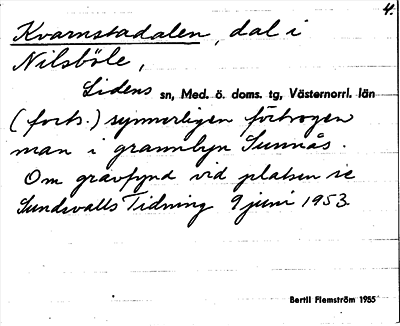 4.
Kvarnstadalen, dal i
Nilsböle,
Lidens sn, Med. ö. doms. tg, Västernorrl. län
(forts.) synnerligen förtrogen
man i grannbyn Sunnås.
Om gravfynd vid platsen se
Sundsvalls Tidning 9 juni 1953
Bertil Flemström 1955